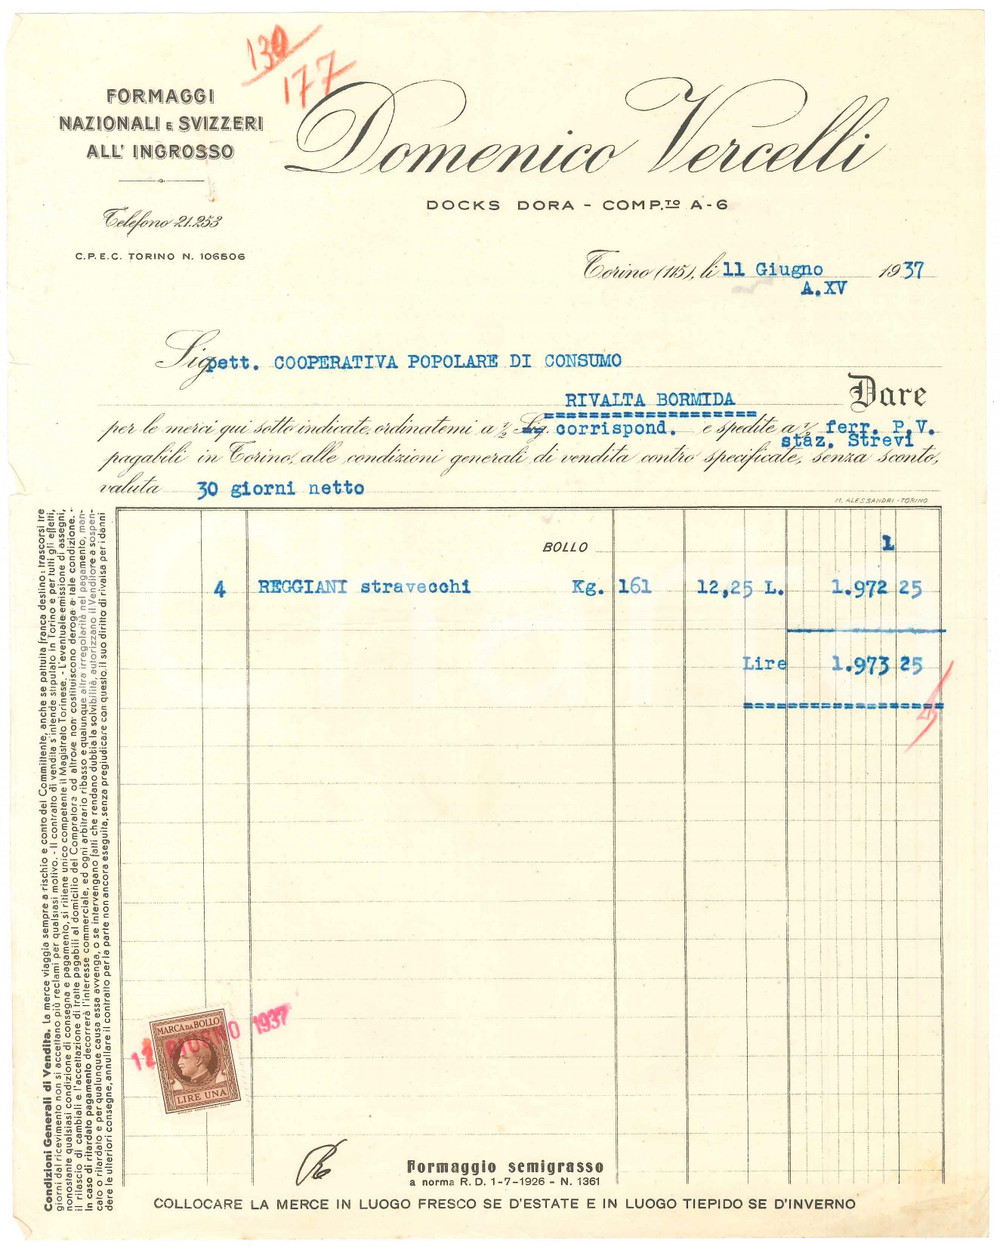 130
177
FORMAGGI
NAZIONALI E SVIZZERI
ALL' INGROSSO
Telefono 21.253
C.P.E.C. TORINO N. 106506
Domenico Vercelli
DOCKS DORA - COMP.TO A-6
Torino (115), li 11 Giugno 1937
A.XV
Sig pett. COOPERATIVA POPOLARE DI CONSUMO
RIVALTA BORMIDA Dare
per le merci qui sotto indicate, ordinatemi a ½ Sig. corrispond. e spedite a ½ ferr. P.V.
staz. Strevi
pagabili in Torino, alle condizioni generali di vendita contro specificate, senza sconto,
valuta 30 giorni netto
M. ALESSANDRI - TORINO
BOLLO 1
4 REGGIANI stravecchi Kg. 161 12,25 L. 1.972 25
Lire 1.973 25
Condizioni Generali di Vendita. La merce viaggia sempre a rischio e conto del Committente, anche se pattuita franca destino; trascorsi tre
giorni dal ricevimento non si accettano più reclami per qualsiasi motivo. - Il contratto di vendita s'intende stipulato in Torino e per tutti gli effetti,
nonostante qualsiasi condizione di consegna e pagamento, si ritiene unico competente il Magistrato Torinese. - L'eventuale emissione di assegni,
il rilascio di cambiali e l'accettazione di tratte pagabili al domicilio del Compratore od altrove non costituiscono deroga a tale condizione. -
In caso di ritardato pagamento decorrerà l'interesse commerciale, ed ogni arbitrario ribasso e qualunque altra irregolarità nel pagamento, man-
cato o ritardato e per qualunque causa essa avvenga, o se intervengano fatti che rendano dubbia la solvibilità, autorizzano il Venditore a sospen-
dere le ulteriori consegne, annullare il contratto per la parte non ancora eseguita, senza pregiudicare con questo il suo diritto di rivalsa per i danni
MARCA DA BOLLO
12 GIUGNO 1937
LIRE UNA
Formaggio semigrasso
a norma R. D. 1-7-1926 - N. 1361
COLLOCARE LA MERCE IN LUOGO FRESCO SE D'ESTATE E IN LUOGO TIEPIDO SE D'INVERNO